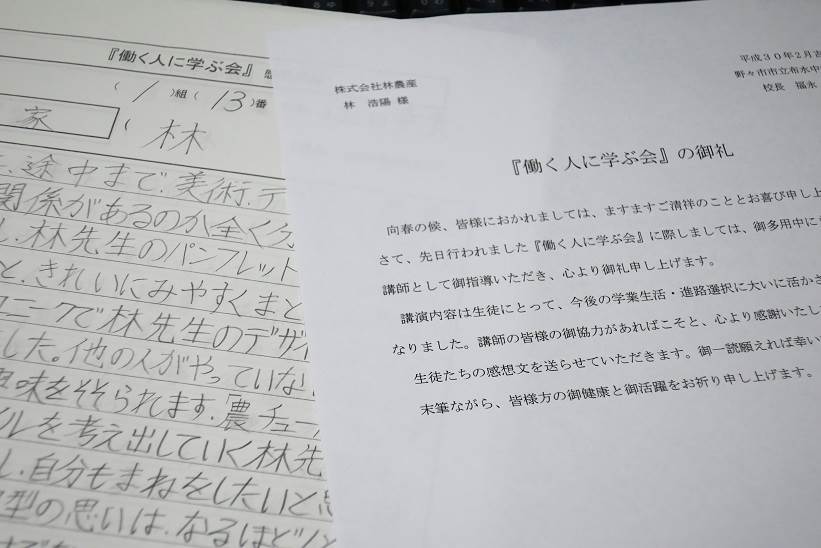 『働く人に学ぶ会』
( 1 )組( 13 )番
家
( 林
途中まで、美術、デ
関係があるのか全く分
林先生のパンフレット
と、きれいにみやすくまと
ニークで林先生のデザイ
した。他の人がやっていない
興味をそそられます。「農チュー
ルを考え出していく林先
し、自分もまねをしたいと思
型の思いは、なるほど
平成30年2月吉
野々市市立布水中
校長 福永
株式会社林農産
林 浩陽 様
『働く人に学ぶ会』の御礼
向春の候、皆様におかれましては、ますますご清祥のこととお喜び申し上
さて、先日行われました『働く人に学ぶ会』に際しましては、御多用中に
講師として御指導いただき、心より御礼申し上げます。
講演内容は生徒にとって、今後の学業生活・進路選択に大いに活かさ
なりました。講師の皆様の御協力があればこそと、心より感謝いたし
生徒たちの感想文を送らせていただきます。御一読願えれば幸い
末筆ながら、皆様方の御健康と御活躍をお祈り申し上げます。